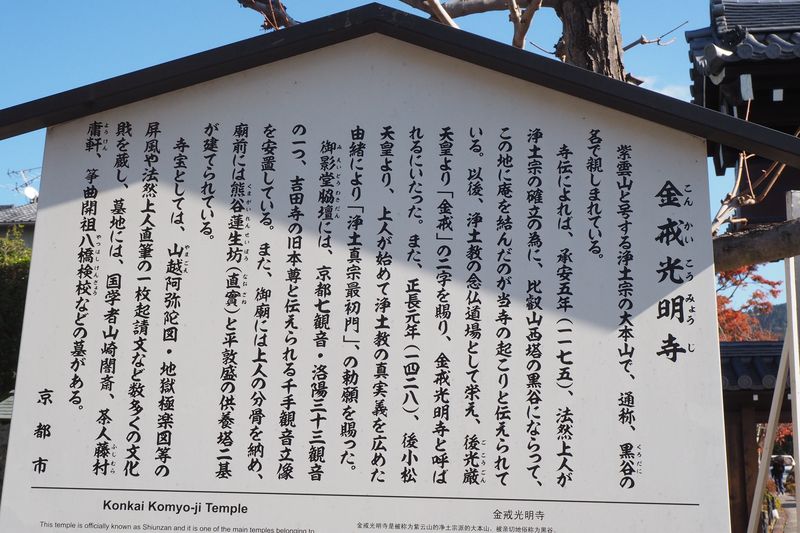 金戒光明寺
こんかいこうみょうじ
紫雲山と号する浄土宗の大本山で、通称、黒谷の
くろだに
名で親しまれている。
寺伝によれば、承安五年(一一七五)、法然上人が
浄土宗の確立の為に、比叡山西塔の黒谷にならって、
この地に庵を結んだのが当寺の起こりと伝えられて
いる。以後、浄土教の念仏道場として栄え、後光厳
ごこうごん
天皇より「金戒」の二字を賜り、金戒光明寺と呼ば
れるにいたった。また、正長元年(一四二八)、後小松
天皇より、上人が始めて浄土教の真実義を広めた
由緒により「浄土真宗最初門」、の勅願を賜った。
御影堂脇壇には、京都七観音・洛陽三十三観音
みえいどうわきだん
の一つ、吉田寺の旧本尊と伝えられる千手観音立像
を安置している。また、御廟には上人の分骨を納め、
廟前には熊谷蓮生坊(直實)と平敦盛の供養塔二基
くまがいれんせいぼう
なおざね
が建てられている。
寺宝としては、山越阿弥陀図・地獄極楽図等の
やまごえ
屏風や法然上人直筆の一枚起請文など数多くの文化
財を蔵し、墓地には、国学者山崎闇斎、茶人藤村
ふじむら
庸軒、箏曲開祖八橋検校などの墓がある。
ようけん
やつはしけんぎょう
京都市
Konkai Komyo-ji Temple
This temple is officially known as Shiunzan and it is one of the main temples belonging to
金戒光明寺
金戒光明寺是被称为紫云山的净土宗派的大本山，被亲切地俗称为黑谷。